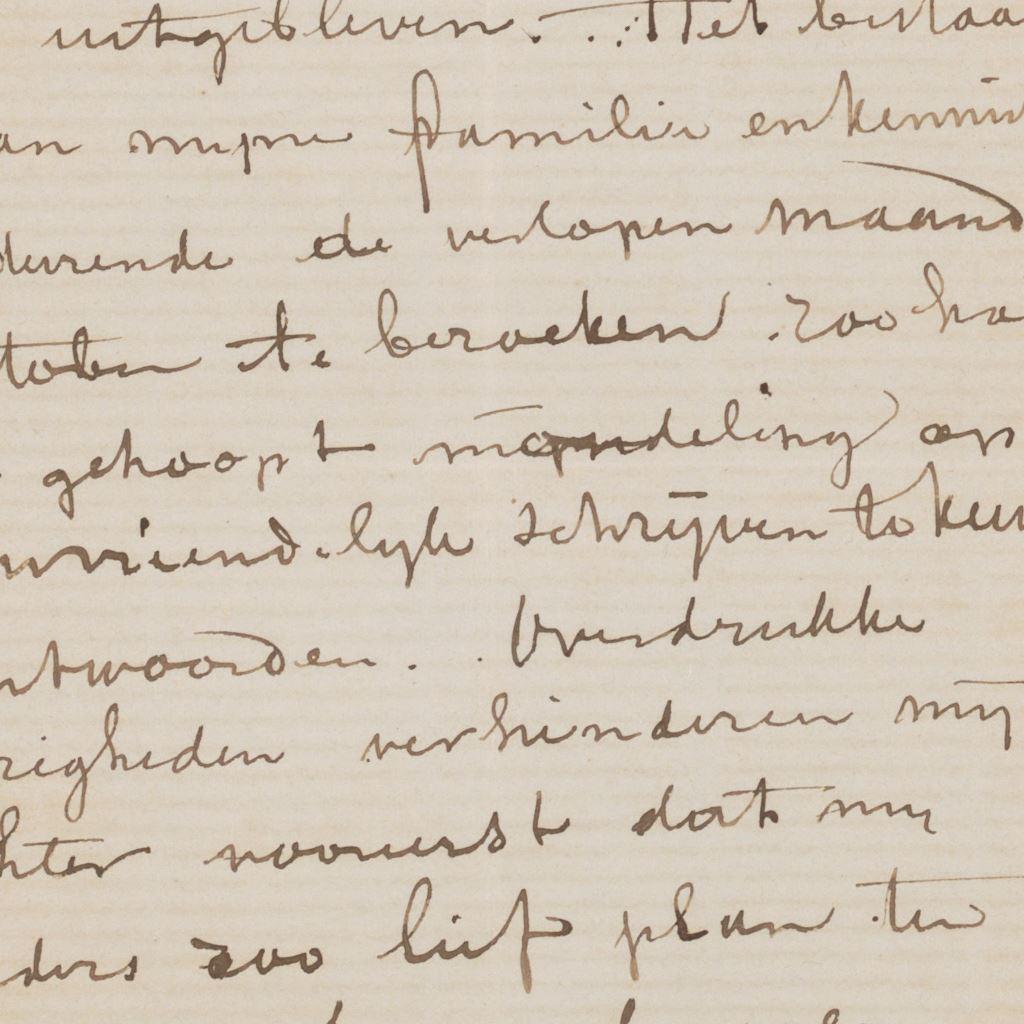 uitgebleven. Het bestaa
an mijne familie en kennis
durende de verlopen maand
tober te bezoeken zoo ha
gehoopt mondeling op
vriendelijk schrijven te kun
ntwoorden. Overdrukke
zigheden verhinderen mij
hter vooreerst dat mij
ders zoo lief plan ten